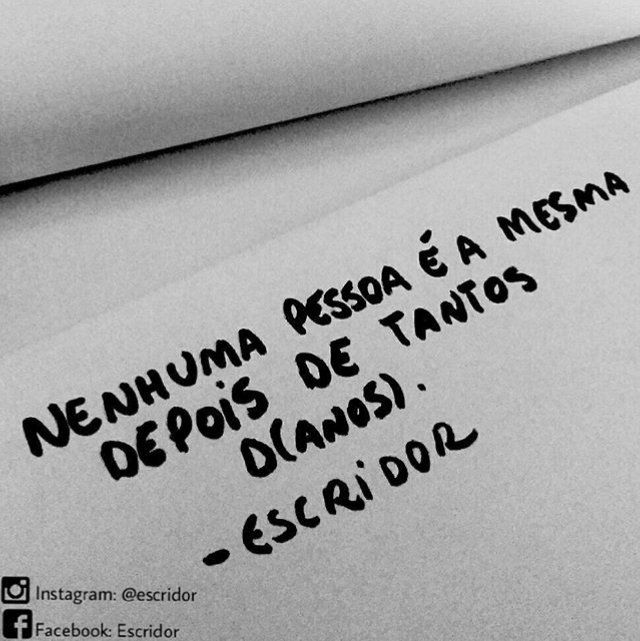 NENHUMA PESSOA É A MESMA
DEPOIS DE TANTOS
D(ANOS).
- ESCRIDOR
Instagram: @escridor
Facebook: Escridor